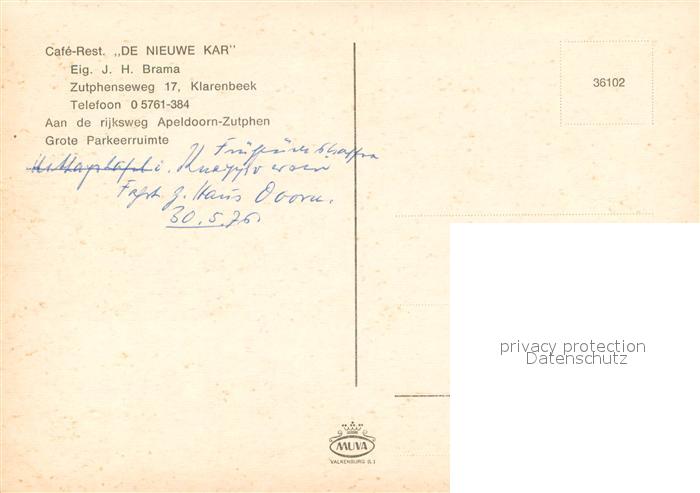 Café-Rest. ,,DE NIEUWE KAR"
Eig. J. H. Brama
Zutphenseweg 17, Klarenbeek
Telefoon 0 5761-384
Aan de rijksweg Apeldoorn-Zutphen
Grote Parkeerruimte
Fahrt z. Haus Doorn.
30.5.76
36102
privacy protection
Datenschutz
MUVA
VALKENBURG (L.)